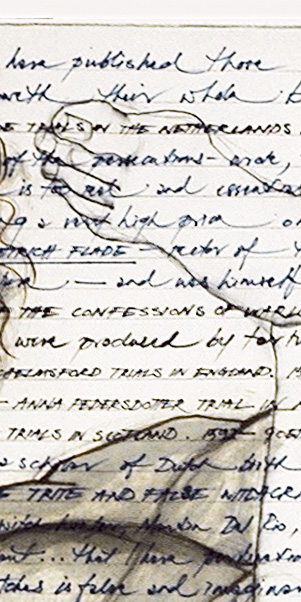 have published those
with their whole
E TRIALS IN THE NETHERLANDS
of the persecutions - wrote,
is to rest and essential
g a very high price
TRICH FLADE - rector of
— and was himself
THE CONFESSIONS OF WARLO
were produced by tor
HELMSFORD TRIALS IN ENGLAND.
- ANNA PEDERSDOTER TRIAL IN
TRIALS IN SCOTLAND. 1592-
scholar of Dutch birth
E TRUE AND FALSE WITCHCR
witch hunter, Martin Del Rio,
... that I have
tches is false and imagina